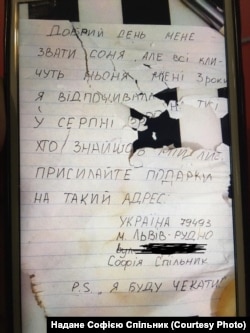 Добрий день мене
звати Соня, але всі кли-
чуть Ньоня. Мені 3 роки
Я відпочивали
у серпні
Хто знайшов мій лис
присилайте подарки
на такий адрес:
Україна 79493
м. Львів-Рудно
Софія Спільник
P.S. Я буду чекати
Надане Софією Спільник (Courtesy Photo)